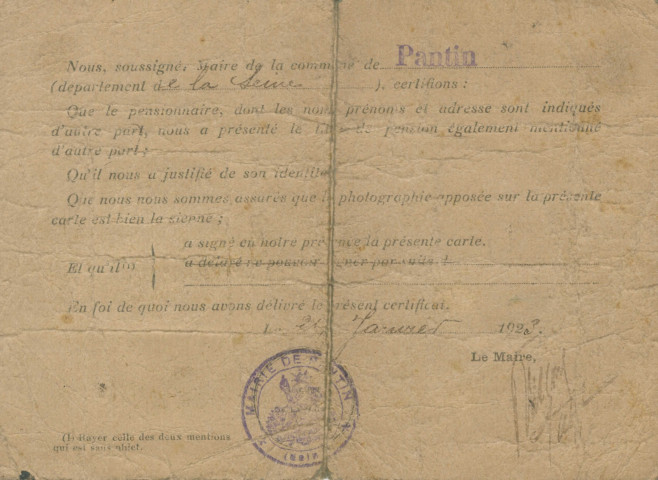 Nous, soussigné, Maire de la commune de Pantin
(département de la Seine ), certifions :
Que le pensionnaire, dont les noms prénoms et adresse sont indiqués
d'autre part, nous a présenté le de pension également mentionné
d'autre part ;
Qu'il nous a justifié de son identité
Que nous nous sommes assurés que la photographie apposée sur la présente
carte est bien la sienne ;
a signé en notre présence la présente carte.
Et qu'il (1)
a déclaré ne pouvoir signer par suite
En foi de quoi nous avons délivré le présent certificat.
Le Janvier 1928.
Le Maire,
MAIRIE DE PANTIN
(Seine)
(1) Rayer celle des deux mentions
qui est sans objet.